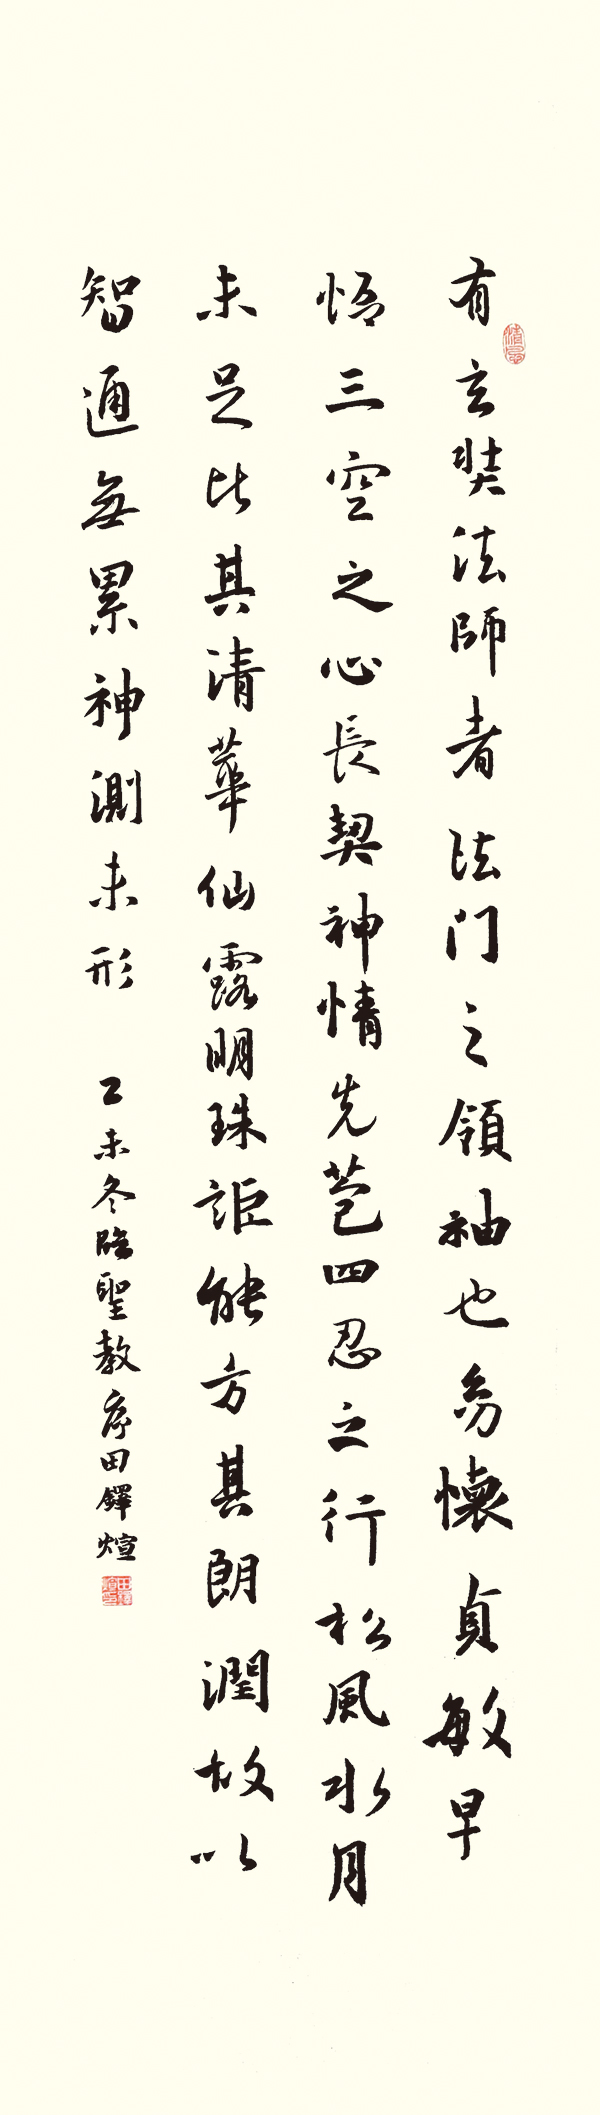 有玄奘法師者法门之領袖也幼懷貞敏早
悟三空之心長契神情先苞四忍之行松風水月
未足比其清華仙露明珠詎能方其朗潤故以
智通無累神測未形
乙未冬臨聖教序田鐸煊